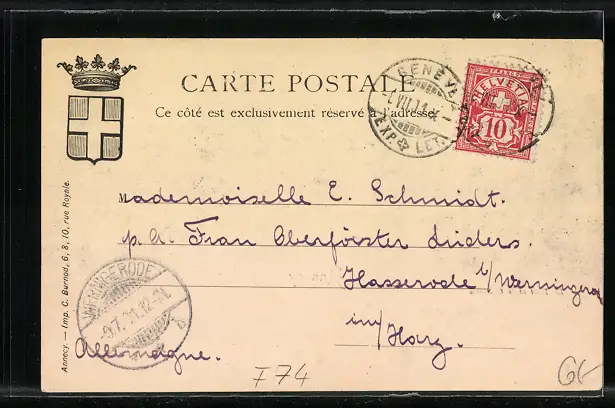 CARTE POSTALE
Ce côté est exclusivement réservé à l'adresse
GENÈVE
EXP. LET.
FRANCO
HELVETIA
10
Mademoiselle E. Schmidt.
p. a. Frau Oberförster Lüders.
Hasserode b/Werningerode
im/Harz.
Allemagne.
WERNIGERODE
Annecy. — Imp. C. Burnod, 6, 8, 10, rue Royale.
F74